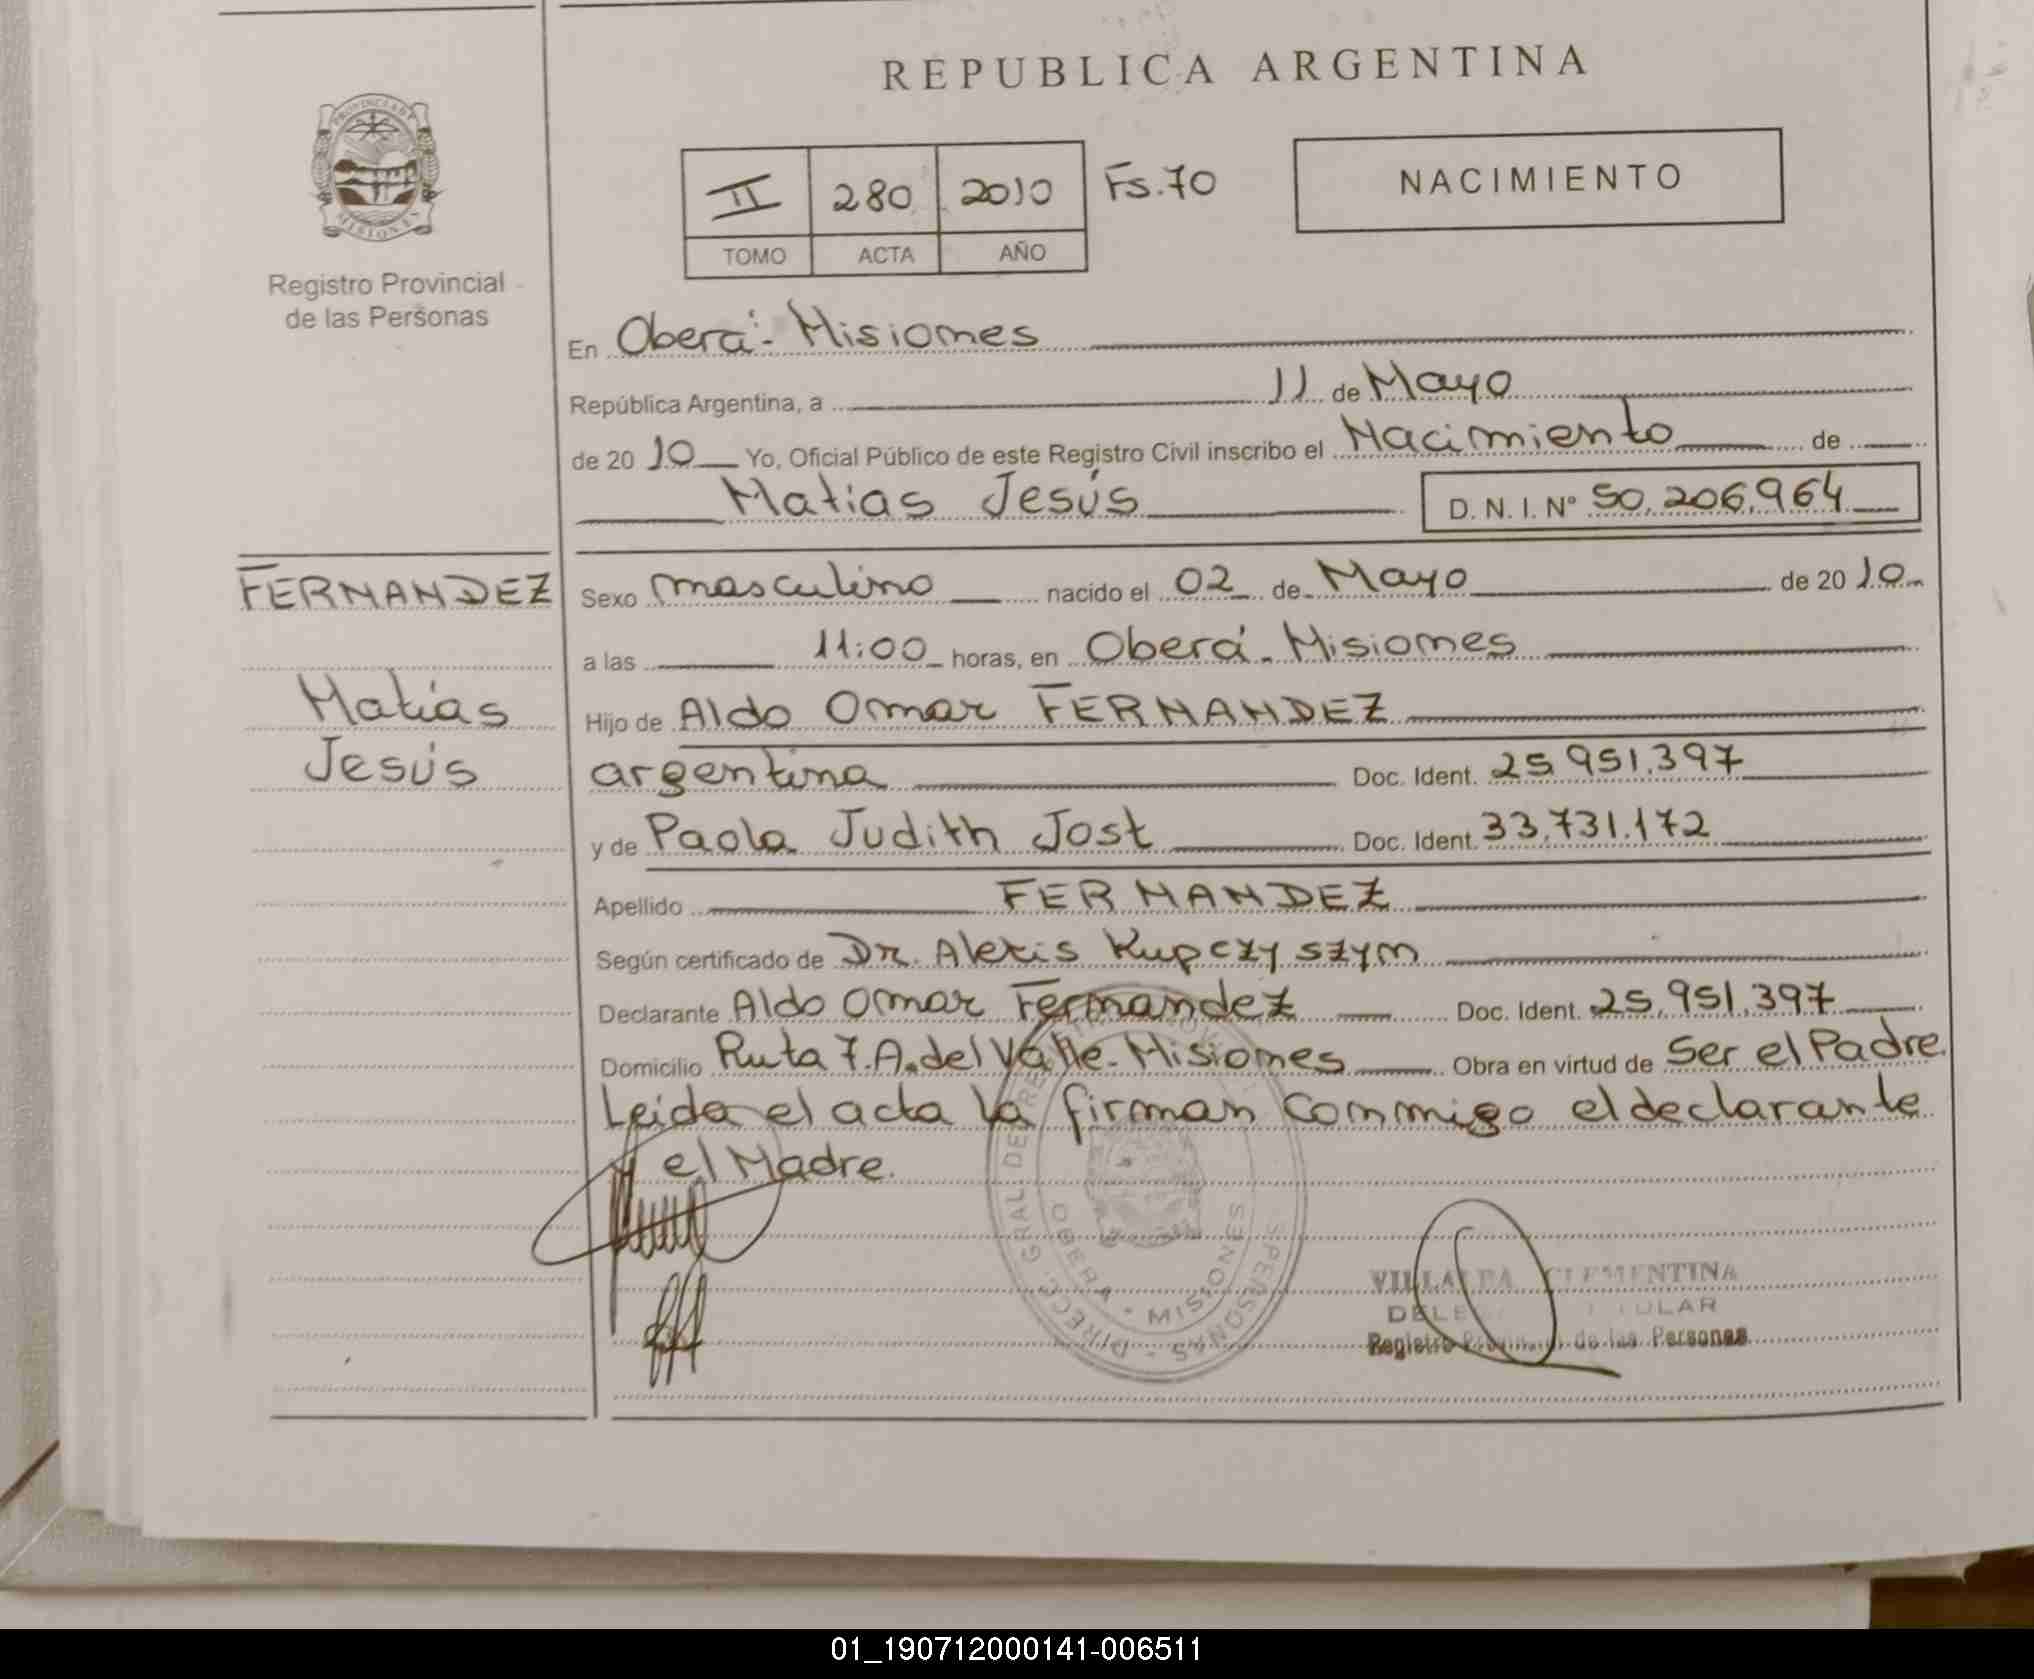 REPUBLICA ARGENTINA
PROVINCIA DE
MISIONES
Registro Provincial
de las Personas
II 280 2010 Fs.70
TOMO ACTA AÑO
NACIMIENTO
En Oberá - Misiones
República Argentina, a 11 de Mayo
de 20 10 Yo, Oficial Público de este Registro Civil inscribo el Nacimiento de
Matias Jesús D. N. I. Nº 50.206.964
FERNANDEZ
Matías
Jesús
Sexo masculino nacido el 02 de Mayo de 20 10
a las 11:00 horas, en Oberá - Misiones
Hijo de Aldo Omar FERNANDEZ
argentina Doc. Ident. 25.951.397
y de Paola Judith Jost Doc. Ident. 33.731.172
Apellido FERNANDEZ
Según certificado de Dr. Alexis Kupczyszyn
Declarante Aldo Omar Fernandez Doc. Ident. 25.951.397
Domicilio Ruta 7. A. del Valle - Misiones Obra en virtud de Ser el Padre.
Leida el acta la firman conmigo el declarante
y el Madre.
DIRECC GRAL DE REGISTRO PERSONAS
OBERA - MISIONES
VILLALBA CLEMENTINA
DELE TITULAR
Registro Provincial de las Personas
01_190712000141-006511